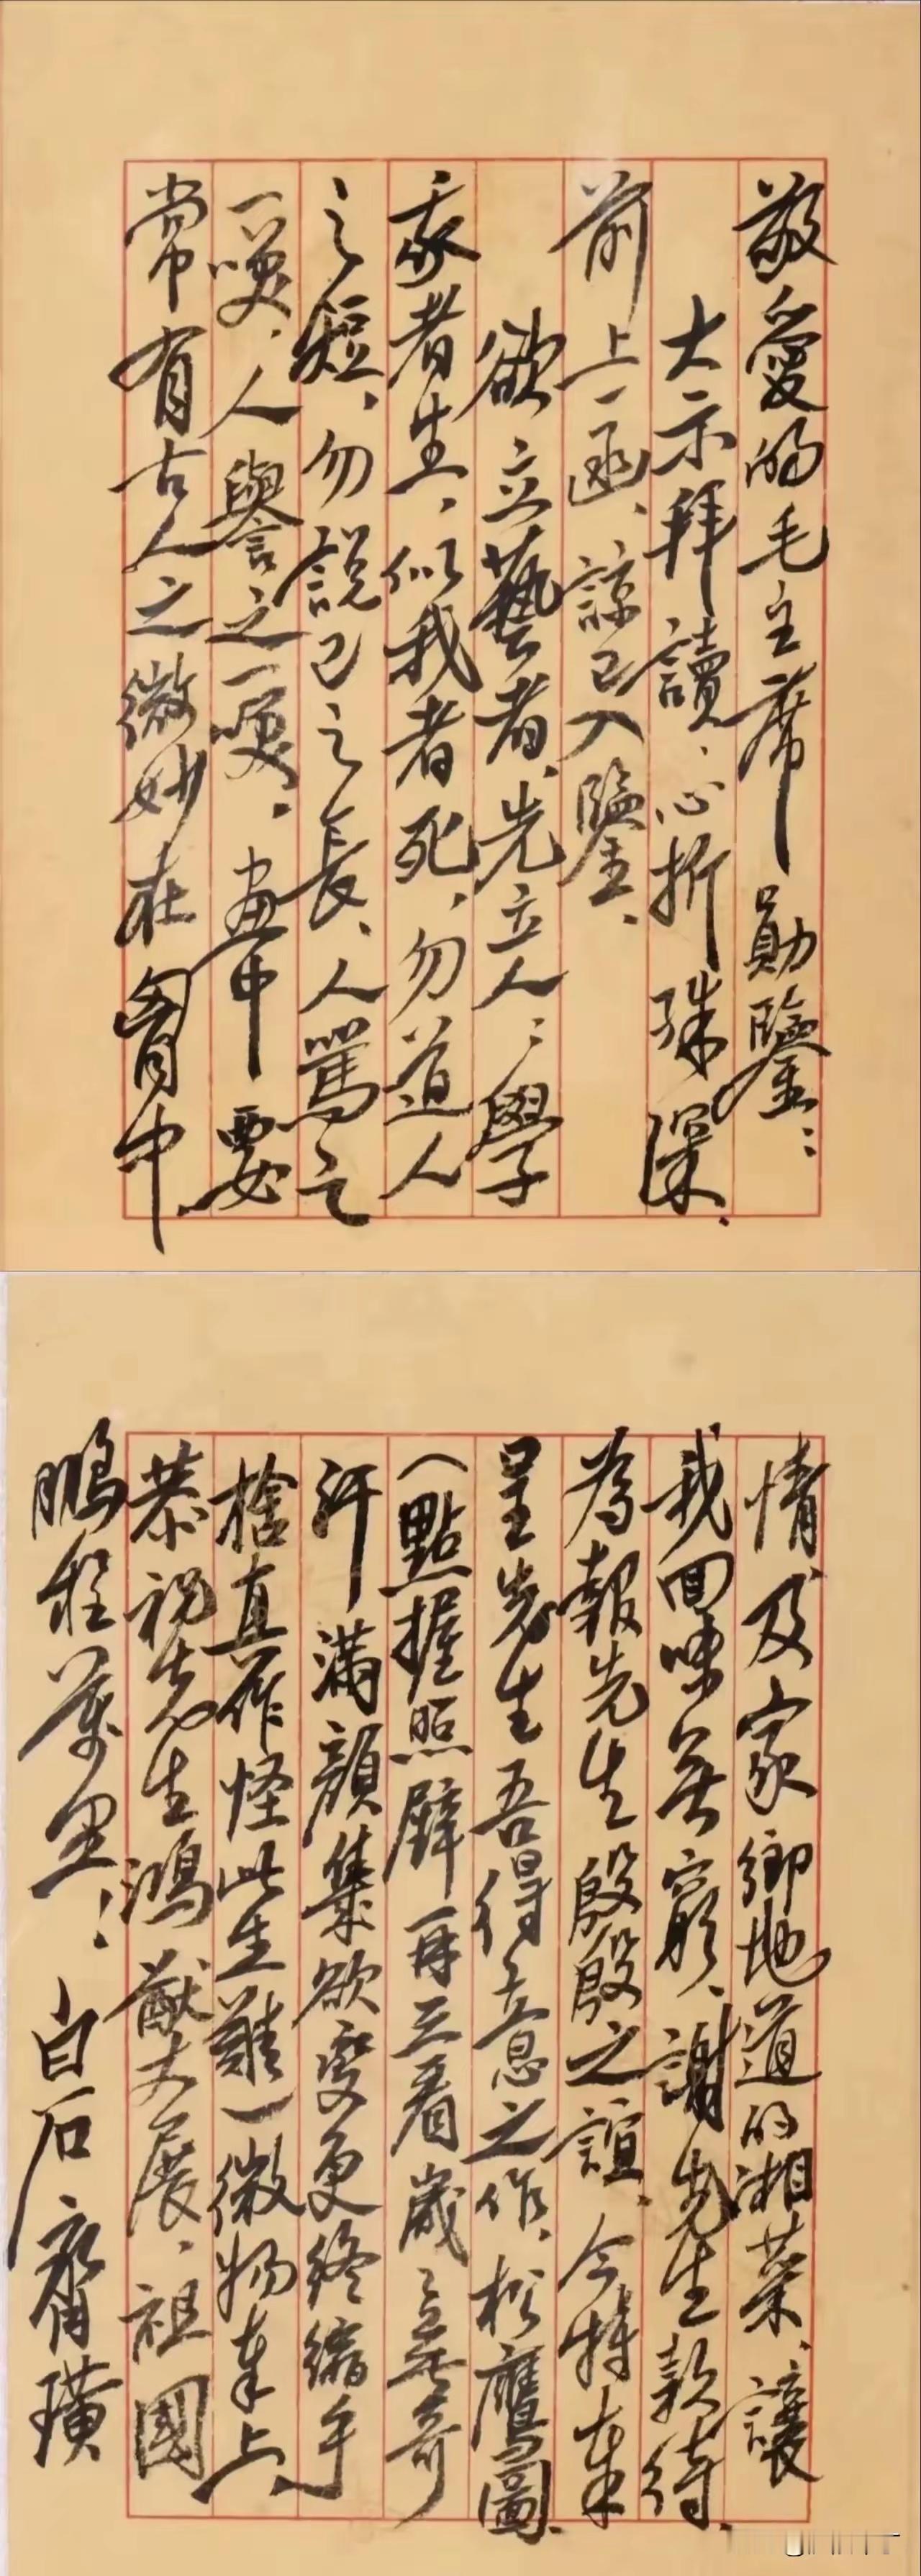 敬愛的毛主席勛鑒：
大示拜讀、心折殊深、
前上一函、諒已入鑒、
欲立藝者、先立人；學
我者生、似我者死、勿道人
之短、勿說己之長、人罵之
一笑、人譽之一笑、畫中要
常有古人之微妙在胷中
情及家鄉地道的湘菜、讓
我回味無窮、謝先生款待、
為報先生殷殷之誼、今特奉
呈先生吾得意之作、松鷹圖、
（點握照壁再三看歲之無奇
汗滿顏集欲變更終縮手
捨真作怪此生難一微物奉上、
恭祝先生鴻猷大展、祖國
鵬程萬里：白石齊璜